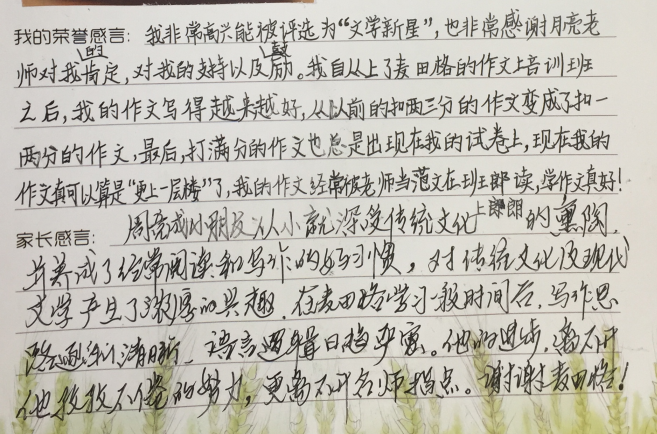 我的荣誉感言：我非常高兴能被评选为“文学新星”，也非常感谢月亮老
师对我的肯定，对我的支持以及鼓励。我自从上了麦田格的作文上培训班
之后，我的作文写得越来越好，从以前的扣两三分的作文变成了扣一
两分的作文，最后，打满分的作文也总是出现在我的试卷上，现在我的
作文真可以算是“更上一层楼”了，我的作文经常被老师当范文在班上朗读，学作文真好！
家长感言：周亮成小朋友从小就深受传统文化的熏陶，
并养成了经常阅读和写作的好习惯，对传统文化及现代
文学产生了浓厚的兴趣。在麦田格学习一段时间后，写作思
路逐渐清晰、语言逻辑日趋严密。他的进步，离不开
他孜孜不倦的努力，更离不开名师指点。谢谢麦田格！